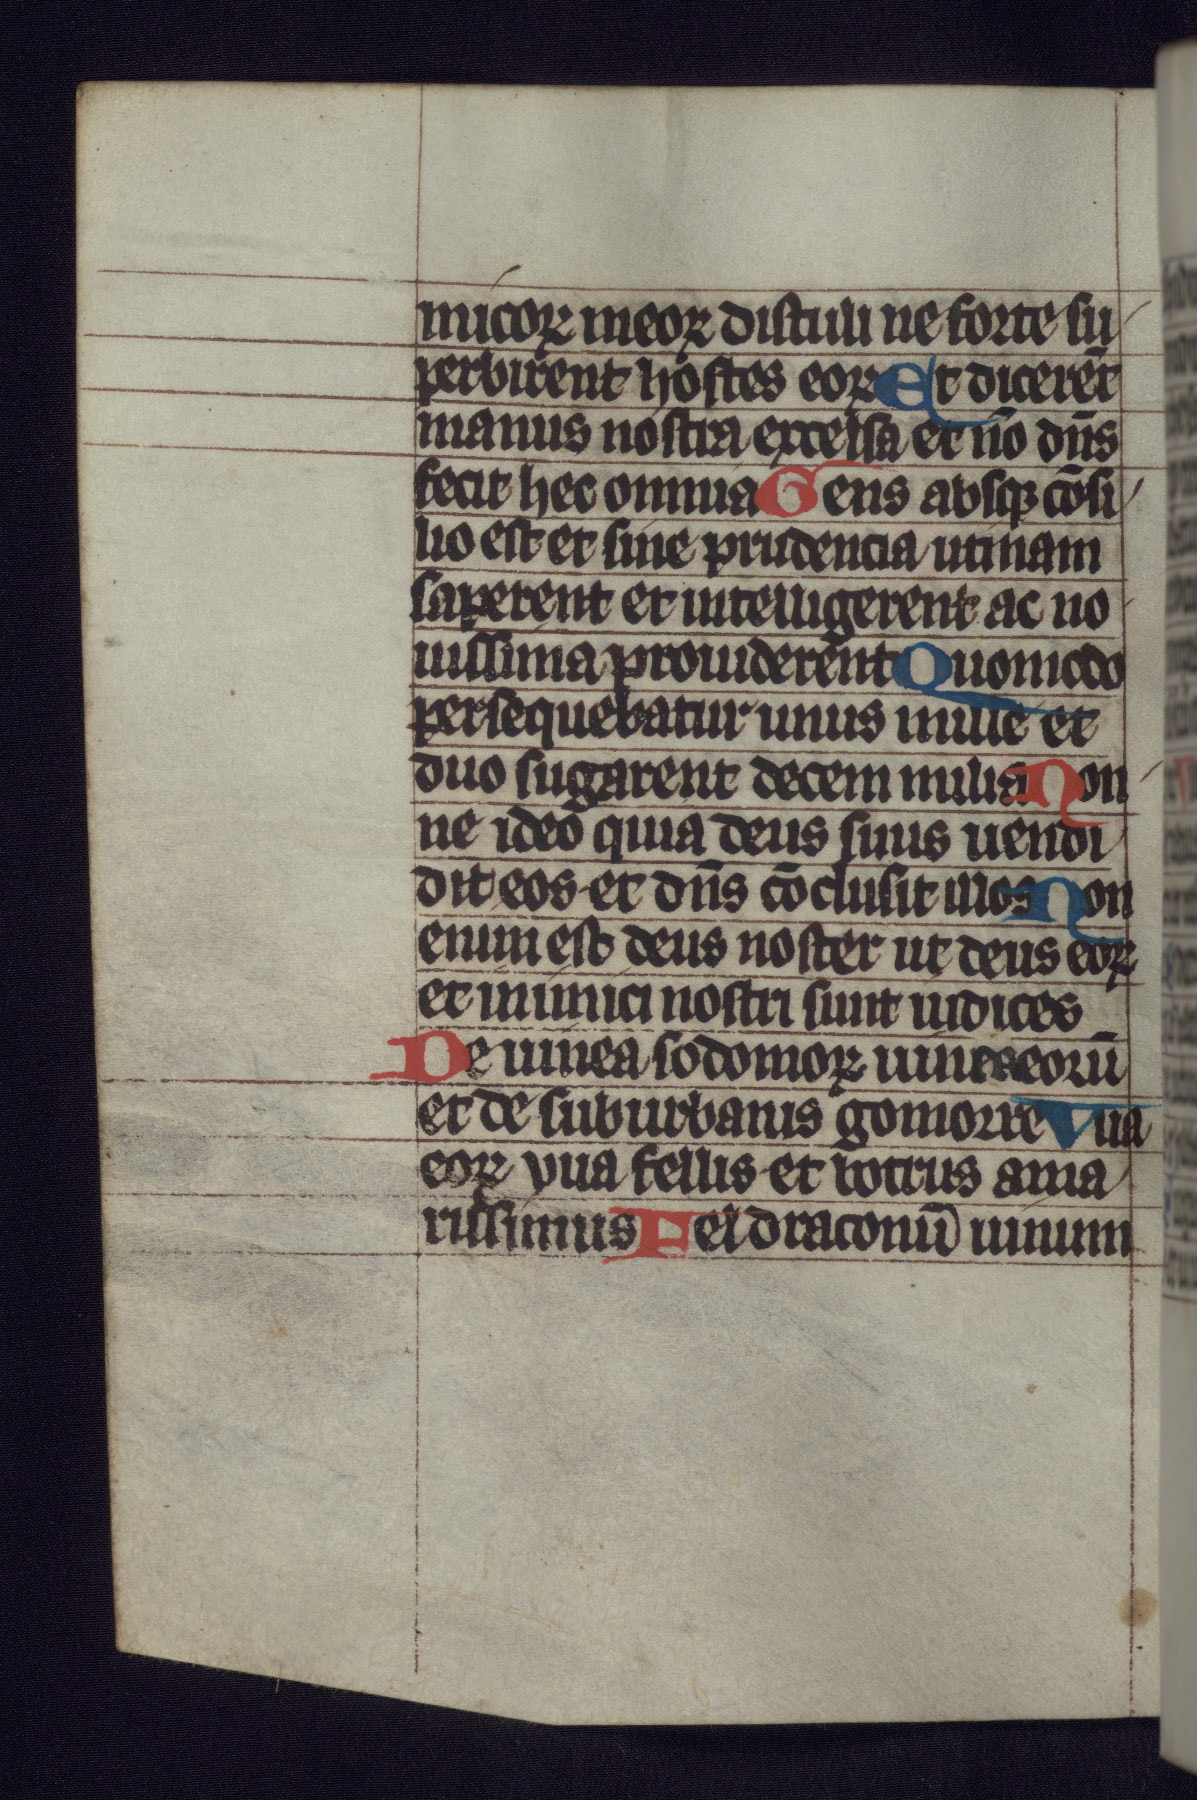 micoꝝ meoꝝ distuli ne forte su
perbirent hostes eoꝝ Et dicerēt
manus nostra excelsa et nō dn̄s
fecit hec omnia Gens absqꝫ cōsi
lio est et sine prudencia utinam
saperent et intelligerent ac no
uissima prouiderent Quomodo
persequebatur unus mille et
duo fugarent decem milia Non
ne ideo quia deus suus uendi
dit eos et dn̄s cōclusit illos Non
enim est deus noster ut deus eoꝝ
et inimici nostri sunt iudices
De uinea sodomoꝝ uinea eorū
et de suburbanis gomorre Vua
eoꝝ vua fellis et botrus ama
rissimus Fel draconū uinum